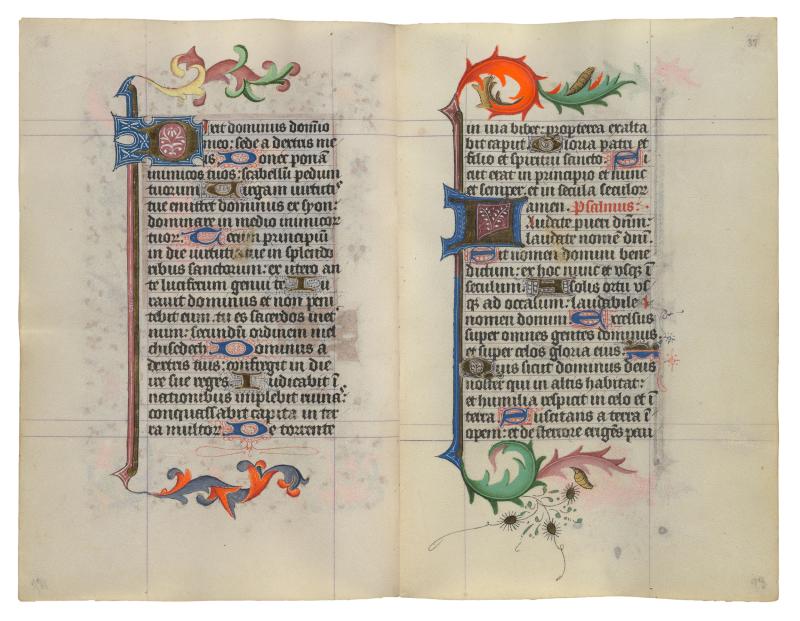 Dixit dominus domĩo
meo: sede a dextris me
is Donec ponã
inimicos tuos: scabellũ pedum
tuorum. Virgam virtutis
tue emittet dominus ex syon:
dominare in medio inimicoꝝ
tuoꝝ. Tecum principiũ
in die virtutis tue in splendo
ribus sanctorum: ex utero an
te luciferum genui te. Iu
ravit dominus et non peni
tebit eum: tu es sacerdos in et
num: secundũ ordinem mel
chisedech. Dominus a
dextris tuis: confregit in die
ire sue reges. Iudicabit ĩ
nationibus implebit ruinas:
conquassabit capita in ter
ra multoꝝ. De torrente
37
in via bibet: propterea exalta
bit caput. Gloria patri et
filio et spiritui sancto. Si
cut erat in principio et nunc
et semper: et in secula seculoꝝ
amen. Psalmus:
Laudate pueri dñm:
laudate nomẽ dñi.
Sit nomen domini bene
dictum: ex hoc nunc et usqꝫ ĩ
seculum. A solis ortu us
qꝫ ad occasum: laudabile
nomen domini Excelsus
super omnes gentes dominus
et super celos gloria eius.
Quis sicut dominus deus
noster qui in altis habitat:
et humilia respicit in celo et ĩ
terra Suscitans a terra ĩ
opem: et de stercore erigẽs pau